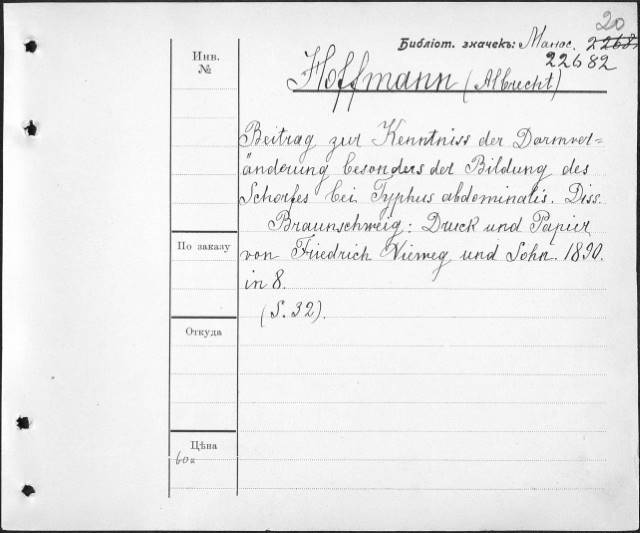 20
Библіот. значекъ: Манос. 2268
22682
Инв.
№
Hoffmann (Albrecht)
Beitrag zur Kenntniss der Darmver=
änderung besonders der Bildung des
Schorfes bei Typhus abdominalis. Diss.
Braunschweig: Druck und Papier
По заказу
von Friedrich Vieweg und Sohn. 1890.
in 8.
(S. 32).
Откуда
Цѣна
60к